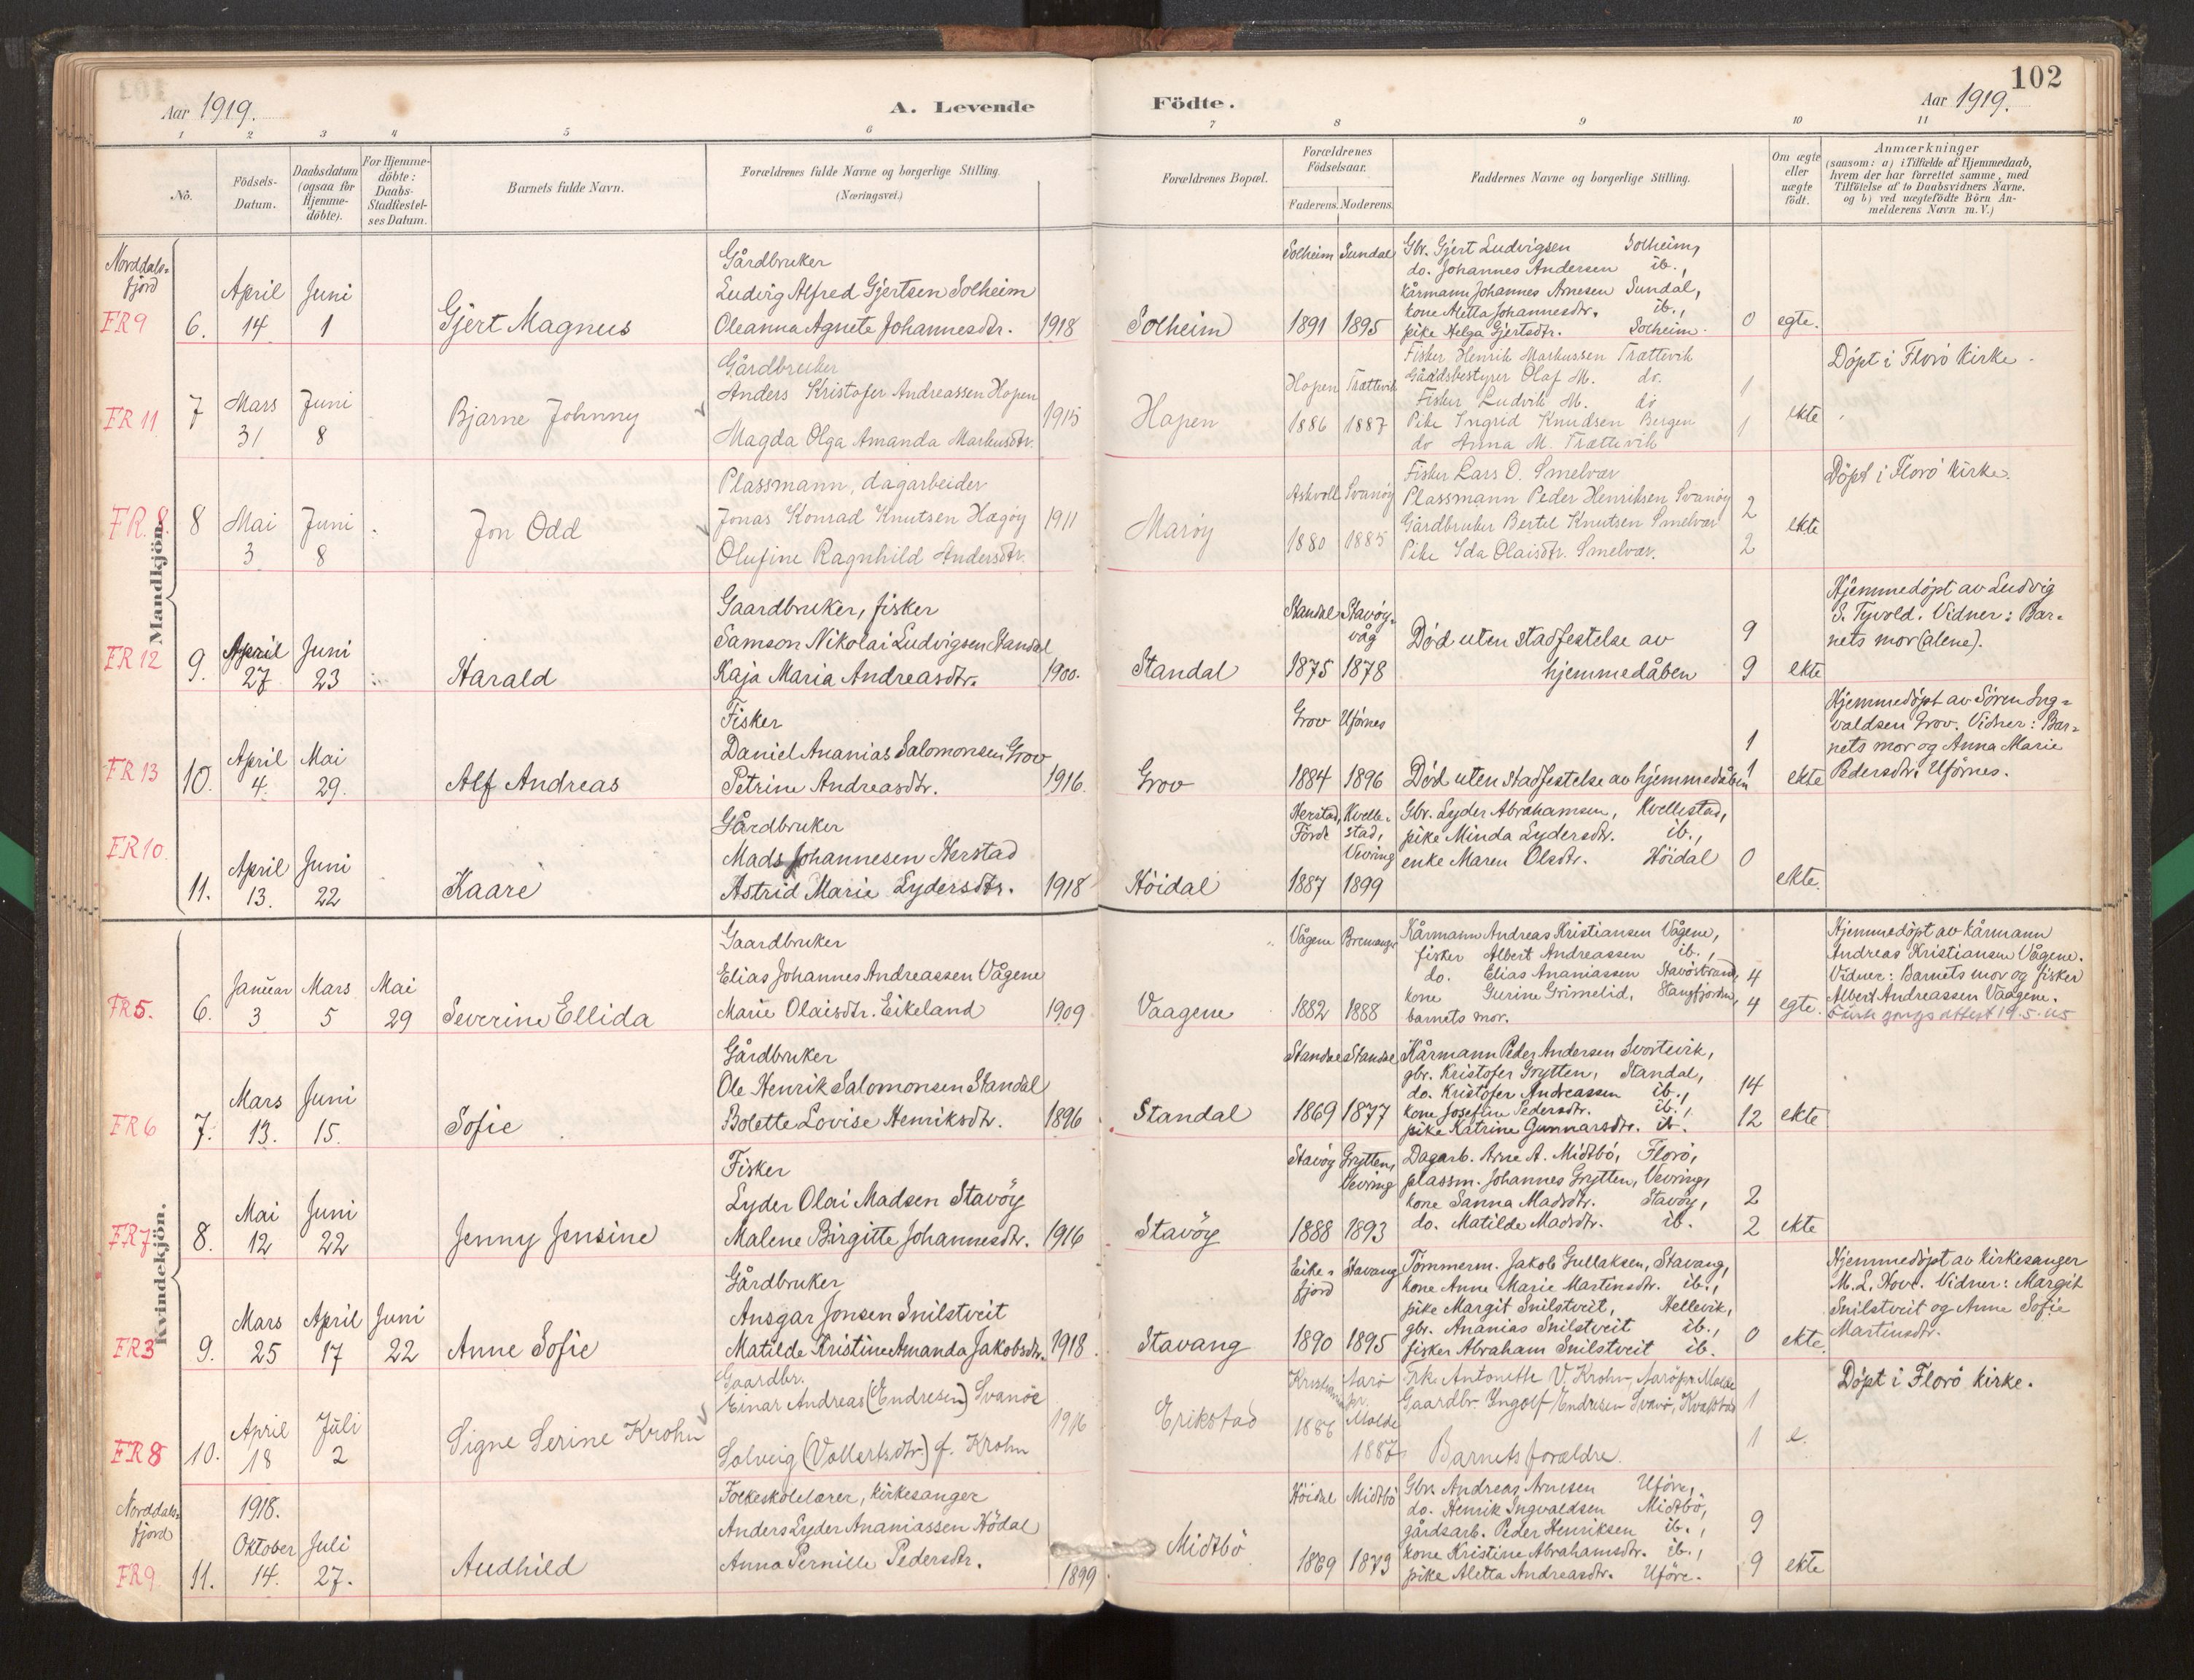 102
Aar 1919.
A. Levende
Födte.
Aar 1919.
1 2 3 4 5 6 7 8 9 10 11
No.
Födsels-
Datum.
Daabsdatum
(ogsaa for
Hjemme-
döbte).
For Hjemme-
döbte:
Daabs-
Stadfæstel-
ses Datum.
Barnets fulde Navn.
Forældrenes fulde Navne og borgerlige Stilling.
(Næringsvei.)
Forældrenes Bopæl.
Forældrenes
Födselsaar.
Faderens. Moderens.
Faddernes Navne og borgerlige Stilling.
Om ægte
eller
uægte
födt.
Anmærkninger
(saasom: a) i Tilfælde af Hjemmedaab,
hvem der har forrettet samme, med
Tilföielse af to Daabsvidners Navne,
og b) ved uægtefödte Börn An-
melderens Navn m. V.)
Mandkjön.
Norddals-
fjord
FR 9
6.
April
14
Juni
1
Gjert Magnus
Gårdbruker
Ludvig Alfred Gjertsen Solheim
Oleanna Agnete Johannesdtr. 1918
Solheim
Solheim Sundal
1891 1895
Gbr. Gjert Ludvigsen Solheim,
do. Johannes Andersen ib.,
Kårmann Johannes Arnesen Sundal,
kone Aletta Johannesdtr. ib.,
pike Helga Gjertsdtr. Solheim.
0
egte.
FR 11
7
Mars
31
Juni
8
Bjarne Johnny
Gårdbruker
Anders Kristofer Andreassen Hopen
Magda Olga Amanda Markusdtr.
1915
Hopen
Hopen Trættevik
1886 1887
Fisker Henrik Markussen Trættevik
Gaardsbestyrer Olaf M. do.
Fisker Ludvik M. do
Pike Ingrid Knudsen Bergen
do Anna M. Trættevik
1
1
ekte
Döpt i Florö Kirke.
FR. 8.
8
Mai
3
Juni
8
Jon Odd
Plassmann, dagarbeider
Jonas Konrad Knutsen Hægöy 1911
Olufine Ragnhild Andersdtr.
Maröy
Askvoll Svanöy
1880 1885
Fisker Lars O. Smelvær
Plassmann Peder Henriksen Svanöy
Gårdbruker Bertel Knutsen Smelvær
Pike Ida Olaisdtr. Smelvær.
2
2
ekte
Döpt i Florö kirke.
FR 12
9.
April
27
Juni
23
Harald
Gaardbruker, fisker
Samson Nikolai Ludvigsen Standal
Kaja Maria Andreasdtr. 1900.
Standal
Standal Stavöy-
våg
1875 1878
Död uten stadfestelse av
hjemmedåben
9
9
ekte
Hjemmedöpt av Ludvig
S. Tyvold. Vidner: Bar-
nets mor (alene).
FR 13
10.
April
4.
Mai
29.
Alf Andreas
Fisker
Daniel Ananias Salomonsen Grov
Petrine Andreasdtr. 1916.
Grov
Grov Uförnes
1884 1896
Död uten stadfestelse av hjemmedåben
1
1
ekte
Hjemmedöpt av Sören Ing-
valdsen Grov. Vidner: Bar-
nets mor og Anna Marie
Pedersdtr. Ufornes.
FR 10.
11.
April
13.
Juni
22
Kaare
Gårdbruker
Mads Johannesen Herstad
Astrid Marie Lydersdtr. 1918
Höidal
Herstad, Förde
Kvelle-
stad,
Vevring
1887 1899
Gbr. Lyder Abrahamsen, Kvellestad,
pike Minda Lydersdtr. ib.,
enke Maren Olsdtr. Höidal
0
ekte.
Kvindekjön.
FR 5.
6.
Januar
3
Mars
5
Mai
29
Severine Ellida
Gaardbruker
Elias Johannes Andreassen Vågene
Marie Olaisdtr. Eikeland 1909
Vaagene
Vågene Bremanger
1882 1888
Kårmann Andreas Kristiansen Vågene,
fisker Albert Andreassen ib.,
do. Elias Ananiassen Stavöstrand,
kone Gurine Grimelid, Stangfjorden,
barnets mor.
4
4
egte.
Hjemmedöpt av kårmann
Andreas Kristiansen Vågene.
Vidner: Barnets mor og fisker
Albert Andreassen Vaagene.
19.5.45
FR 6
7.
Mars
13.
Juni
15.
Sofie
Gårdbruker
Ole Henrik Salomonsen Standal
Bolette Lovise Henriksdtr. 1896
Standal
Standal Standal
1869 1877
Kårmann Peder Andersen Svortevik,
gbr. Kristofer Grytten, Standal,
do. Kristofer Andreassen ib.,
kone Josefine Pedersdtr. ib.,
pike Katrine Gunnarsdtr. ib.
14
12
ekte
FR 7
8.
Mai
12
Juni
22
Jenny Jensine
Fisker
Lyder Olai Madsen Stavöy
Malene Birgitte Johannesdtr. 1916
Stavöy
Stavöy Grytten,
Vevring
1888 1893
Dagarb. Arne A. Midtbö, Florö,
plassm. Johannes Grytten, Vevring,
kone Sanna Madsdtr. Stavöy,
do. Matilde Madsdtr. ib.
2
2
ekte
FR 3
9.
Mars
25
April
17
Juni
22
Anne Sofie
Gårdbruker
Ansgar Jonsen Snilstveit
Matilde Kristine Amanda Jakobsdtr. 1918.
Stavang
Eike-
fjord
Stavang
1890 1895
Tömmerm. Jakob Gullaksen, Stavang,
kone Anne Marie Martensdtr. ib.,
pike Margit Snilstveit, Hellevik,
gbr. Ananias Snilstveit ib.,
fisker Abraham Snilstveit ib.
0
ekte.
Hjemmedöpt av kirkesanger
M. L. Hove. Vidner: Margit
Snilstveit og Anne Sofie
Martinsdtr.
FR 8
10.
April
18
Juli
2
Signe Serine Krohn
Gaardbr.
Einar Andreas (Endresen) Svanöe
Solveig (Vollertsdtr) f. Krohn
1916
Erikstad
Aarö
pr.
Molde
1886
1887
Frk. Antonette V. Krohn, Aarö pr Molde
Gaardbr. Yngolf Endresen Svanö, Kvalstad
Barnets forældre.
1
1
e.
Döpt i Florö kirke.
Norddals-
fjord
FR 9
11.
1918.
Oktober
14.
Juli
27.
Audhild
Folkeskolelærer, kirkesanger
Anders Lyder Ananiassen Hödal
Anna Pernille Pedersdtr.
1899
Midtbö
Höidal Midtbö
1869 1873
Gbr. Andreas Arnesen Uföre,
do. Henrik Ingvaldsen Midtbö,
gårdsarb. Peder Henriksen ib.,
kone Kristine Abrahamsdtr. ib.,
pike Aletta Andreasdtr. Uföre.
9
9
ekte